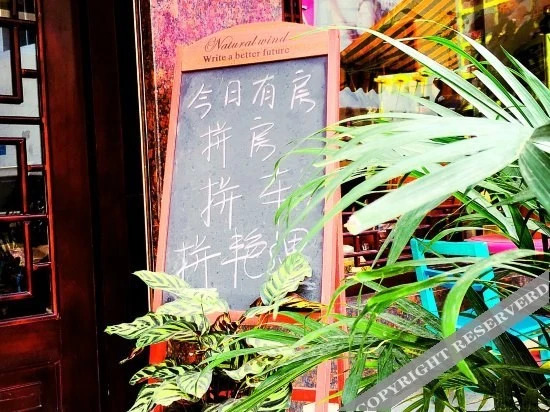 Natural wind
Write a better future
今日有房
拼房
拼车
拼艳遇
COPYRIGHT RESERVED